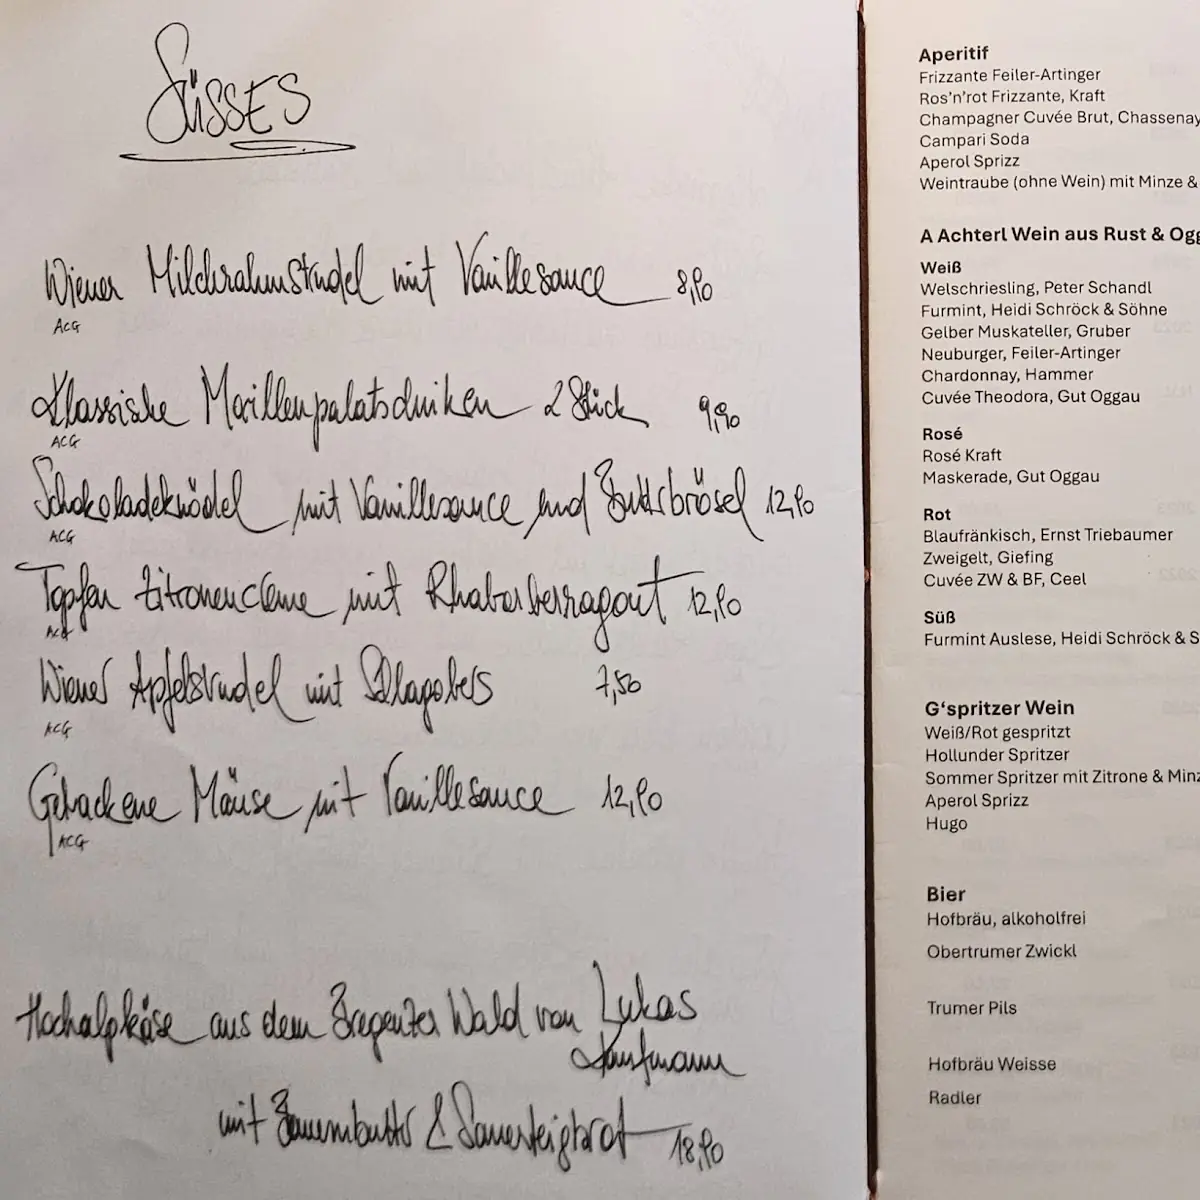 SÜSSES
Wiener Milchrahmstrudel mit Vanillesauce 8,90
ACG
Klassische Marillenpalatschinken 2 Stück 9,90
ACG
Schokoladeknödel mit Vanillesauce und Butterbrösel 12,90
ACG
Topfen Zitronencreme mit Rhabarberragout 12,90
ACG
Wiener Apfelstrudel mit Schlagobers 7,50
ACG
Gebackene Mäuse mit Vanillesauce 12,90
ACG
Hochalpkäse aus dem Bregenzer Wald von Lukas
Kaufmann
mit Bauernbutter & Sauerteigbrot 18,90
Aperitif
Frizzante Feiler-Artinger
Ros’n’rot Frizzante, Kraft
Champagner Cuvée Brut, Chassenay
Campari Soda
Aperol Sprizz
Weintraube (ohne Wein) mit Minze &
A Achterl Wein aus Rust & Ogg
Weiß
Welschriesling, Peter Schandl
Furmint, Heidi Schröck & Söhne
Gelber Muskateller, Gruber
Neuburger, Feiler-Artinger
Chardonnay, Hammer
Cuvée Theodora, Gut Oggau
Rosé
Rosé Kraft
Maskerade, Gut Oggau
Rot
Blaufränkisch, Ernst Triebaumer
Zweigelt, Giefing
Cuvée ZW & BF, Ceel
Süß
Furmint Auslese, Heidi Schröck & S
G‘spritzer Wein
Weiß/Rot gespritzt
Hollunder Spritzer
Sommer Spritzer mit Zitrone & Minz
Aperol Sprizz
Hugo
Bier
Hofbräu, alkoholfrei
Obertrumer Zwickl
Trumer Pils
Hofbräu Weisse
Radler